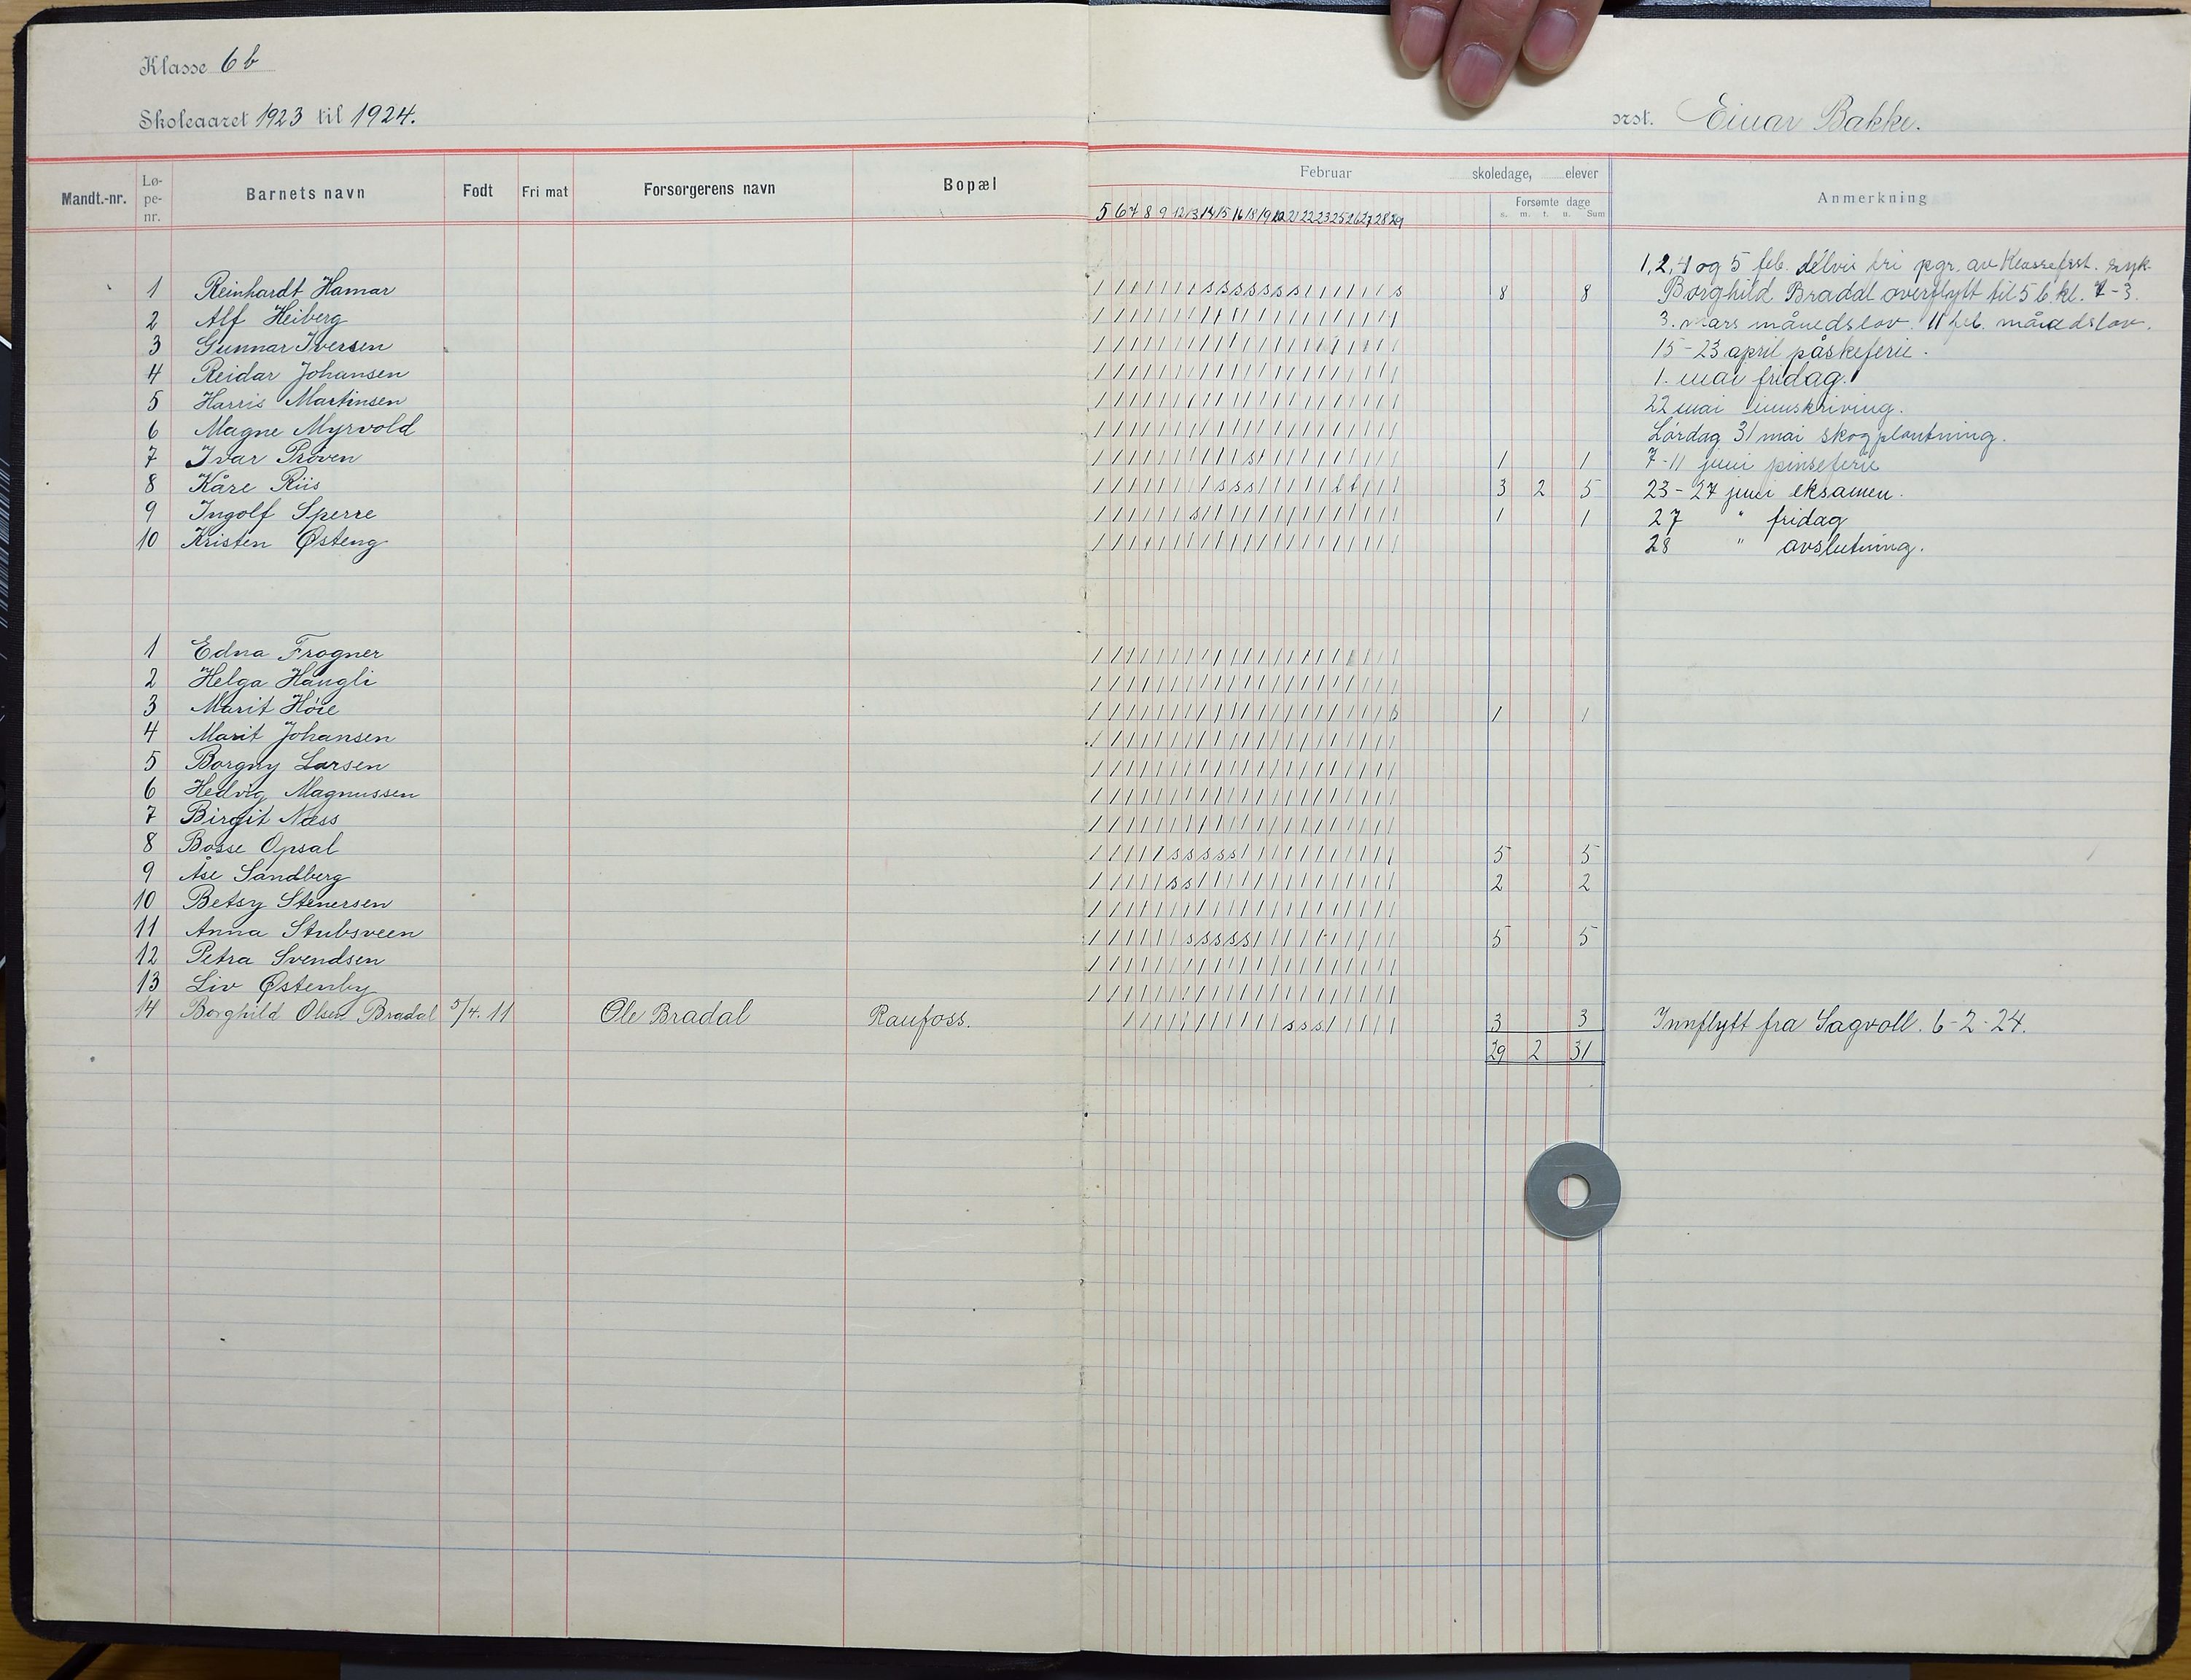 Klasse 6b
Skoleaaret 1923 til 1924.
orst. Einar Bakke.
Mandt.-nr. Lø-pe-nr. Barnets navn Født Fri mat Forsørgerens navn Bopæl Februar skoledage, elever Anmerkning
Forsømte dage
s. m. t. u. Sum
5 6 7 8 9 12 13 14 15 16 18 19 20 21 22 23 25 26 27 28 29
1, 2, 4 og 5 feb. delvis fri pgr. av Klassefrst. syk.
1 Reinhardt Hamar / / / / / / / / s s s s s s s / / / / / / s 8 8 Borghild Bradal overflytt til 5 b kl. 7-3.
2 Alf Heiberg 3. mars månedslov. 11 feb. månedslov.
3 Gunnar Iversen 15-23 april påskeferie.
4 Reidar Johansen 1. mai fridag.
5 Harris Martinsen 22 mai innskriving.
6 Magne Myrvold Lørdag 31 mai skogplantning.
7 Ivar Prøven 1 1 7-11 juni pinseferie
8 Kåre Riis 3 2 5 23-27 juni eksamen.
9 Ingolf Sperre 1 1 27 " fridag
10 Kristen Østeng 28 " avslutning.
1 Edna Frogner
2 Helga Haugli
3 Marit Høie 1 1
4 Marit Johansen
5 Borgny Larsen
6 Hedvig Magnussen
7 Birgit Næss
8 Bosse Opsal 5 5
9 Åse Sandberg 2 2
10 Betsy Stenersen
11 Anna Stubsveen 5 5
12 Petra Svendsen
13 Liv Østenby
14 Borghild Olsen Bradal 5/4. 11 Ole Bradal Raufoss. 3 3 Innflytt fra Sagvoll. 6-2-24.
29 2 31